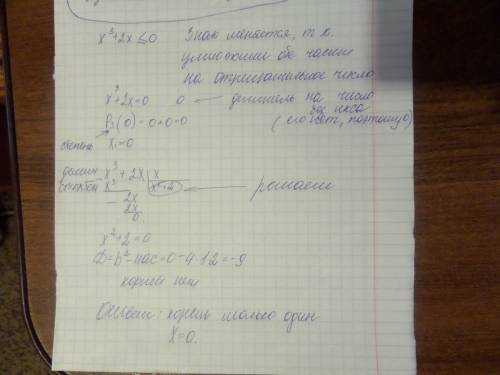 x³+2x ≤ 0 Знак меняется, т.к.
умножили обе части
на отрицательное число
x³+2x=0 0 ← делитель на число
без икса
P₃(0)=0+0=0 ( его нет, поэтому 0)
степень x₁=0
делим x³+2x | x
столбиком x³ | x²+2 ← решаем
- 2x
2x
0.
x²+2=0
D=b²-4ac=0-4·1·2=-8
корней нет
Ответ: корень только один
x=0.